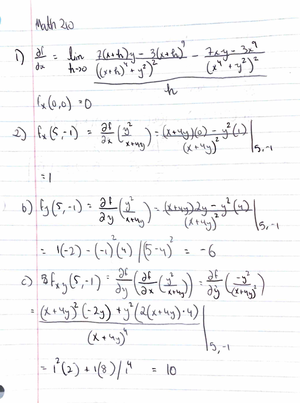 Math 200
1) ∂f/∂x = lim h→0 [7(x+h)y - 3(x+h)⁹ / ((x+h)⁴ + y²)² - 7xy - 3x⁹ / (x⁴ + y²)²] / h
fx(0,0) = 0
2) fx(5,-1) = ∂f/∂x (y²/x+4y) = (x+4y)(0) - y²(1) / (x+4y)² |5,-1
= 1
b) fy(5,-1) = ∂f/∂y (y²/x+4y) = (x+4y)2y - y²(4) / (x+4y)² |5,-1
= 1(-2) - (-1)²(4) / (5-4)² = -6
c) fxy(5,-1) = ∂f/∂y (∂f/∂x (y²/x+4y)) = ∂f/∂y (-y²/(x+4y)²)
= (x+4y)²(-2y) + y²(2(x+4y)·4) / (x+4y)⁴ |5,-1
= 1²(2) + 1(8) / 1⁴ = 10